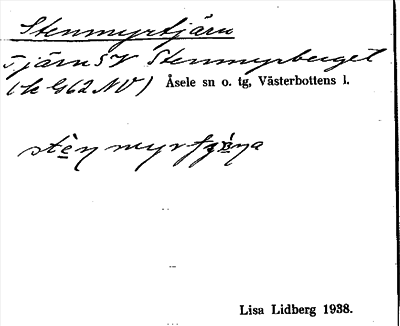 Stenmyrtjärn
Tjärn SV Stenmyrberget
(k G62 NV) Åsele sn o. tg, Västerbottens l.
Lisa Lidberg 1938.